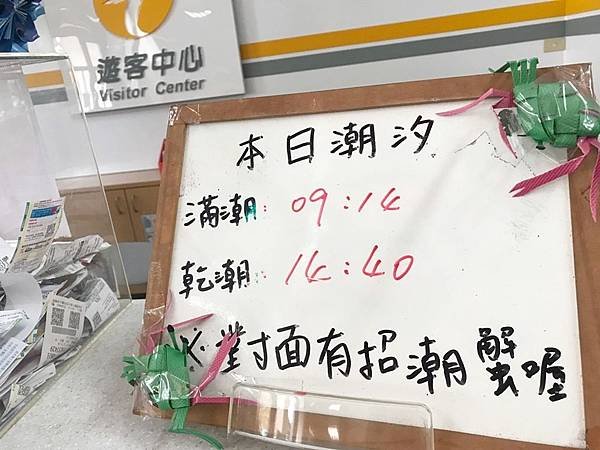 遊客中心
Visitor Center
本日潮汐
滿潮: 09:14
乾潮: 14:40
※對面有招潮蟹喔